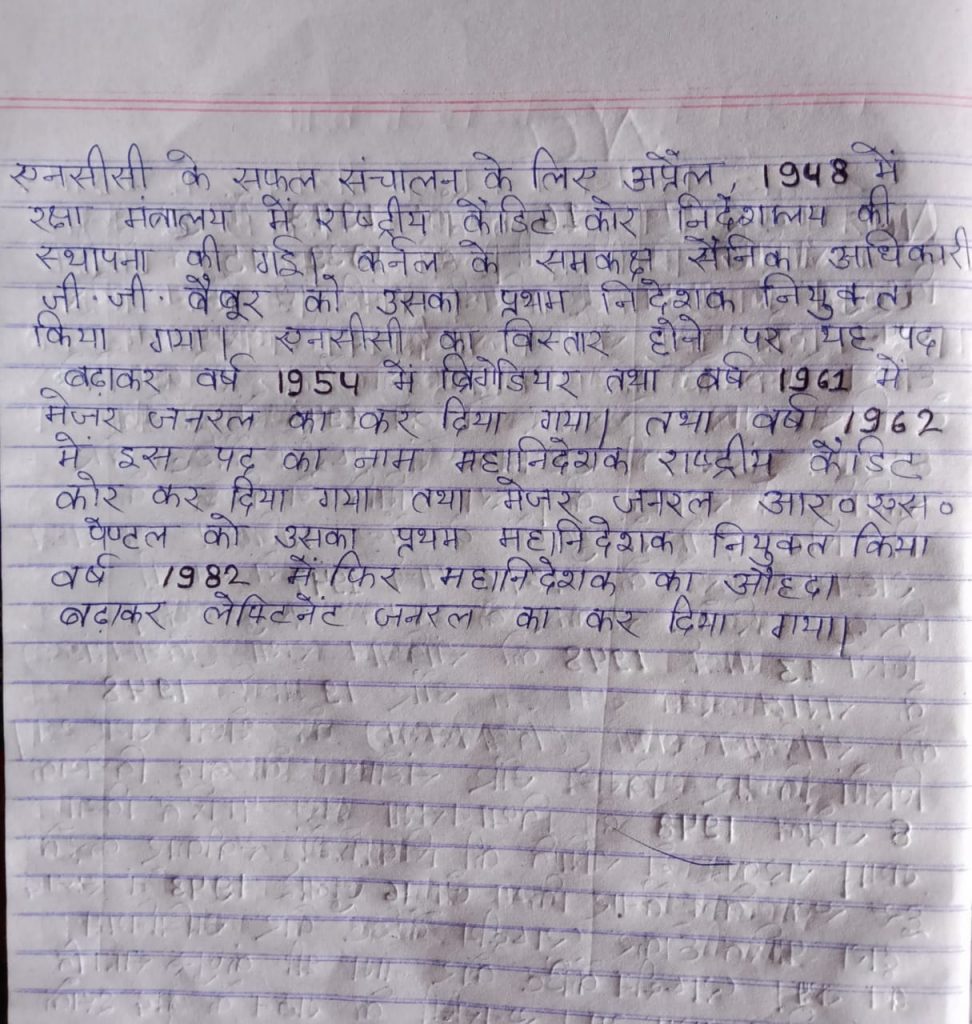 एनसीसी के सफल संचालन के लिए अप्रैल, 1948 में
रक्षा मंत्रालय में राष्ट्रीय कैडिट कोर निर्देशालय की
स्थापना की गई। कर्नल के समकक्ष सैनिक अधिकारी
जी.जी. बैबूर को उसका प्रथम निदेशक नियुक्त
किया गया। एनसीसी का विस्तार होने पर यह पद
बढ़ाकर वर्ष 1954 में ब्रिगेडियर तथा वर्ष 1961 में
मेजर जनरल का कर दिया गया। तथा वर्ष 1962
में इस पद का नाम महानिदेशक राष्ट्रीय कैडिट
कोर कर दिया गया तथा मेजर जनरल आर० एस०
पेण्टल को उसका प्रथम महानिदेशक नियुक्त किया
वर्ष 1982 में फिर महानिदेशक का औहदा
बढ़ाकर लेफ्टिनेंट जनरल का कर दिया गया।